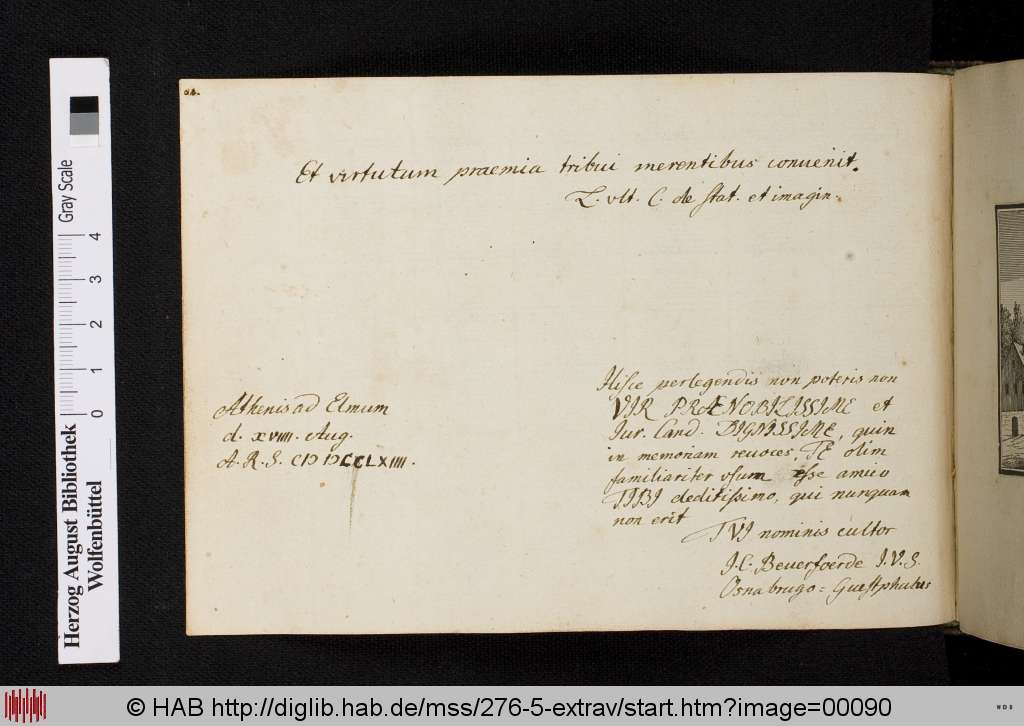 Et virtutum praemia tribui merentibus convenit.
L. vlt. C. de stat. et imagin.
Athenis ad Elmum
d. XVIIII. Aug.
A. R. S. CIↃ IↃCCLXIIII.
Hisce perlegendis non poteris non
VIR PRÆNOBILISSIME et
Iur. Cand. DIGNISSIME, quin
in memoriam revoces, TE olim
familiariter vsum esse amico
TIBI deditissimo, qui nunquam
non erit
TVI nominis cultor
J. C. Beverfoerde J. V. S.
Osnabrugo = Guestphalus
Herzog August Bibliothek
Wolfenbüttel
Gray Scale
0 1 2 3 4
© HAB http://diglib.hab.de/mss/276-5-extrav/start.htm?image=00090